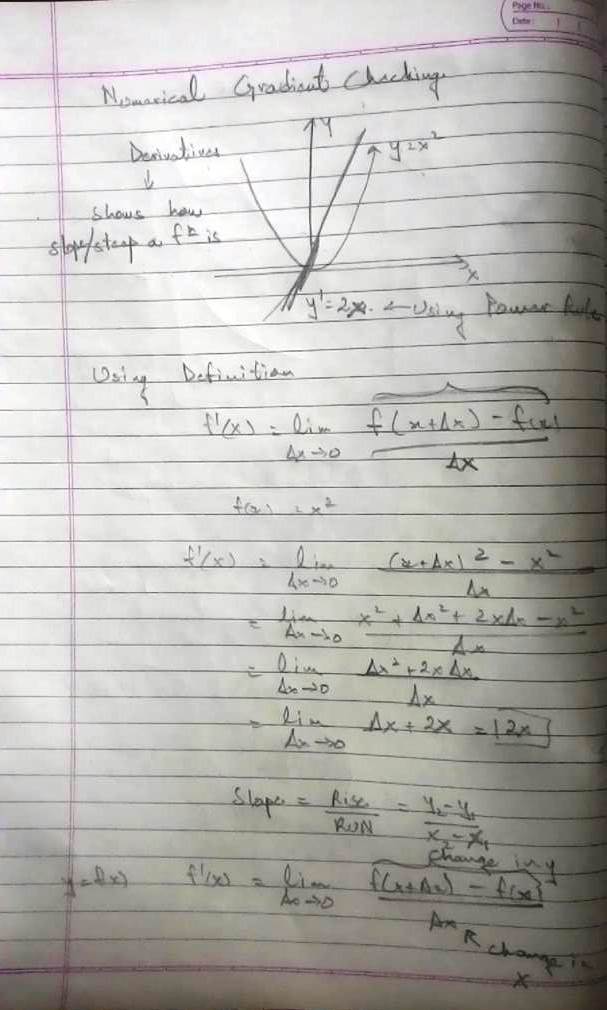 Page No.:
Date: / /
Numerical Gradient Checking
y
Derivatives
y = x²
↓
shows how
slope/steep a fⁿ is
x
y' = 2x. ← Using Power Rule
Using Definition
f'(x) = lim Δx→0 f(x+Δx) - f(x) / Δx
f(x) = x²
f'(x) = lim Δx→0 (x+Δx)² - x² / Δx
= lim Δx→0 x² + Δx² + 2xΔx - x² / Δx
= lim Δx→0 Δx² + 2xΔx / Δx
= lim Δx→0 Δx + 2x = 2x
Slope = Rise / RUN = y₂-y₁ / x₂-x₁
change in y
y = f(x) f'(x) = lim Δx→0 f(x+Δx) - f(x) / Δx
change in
x